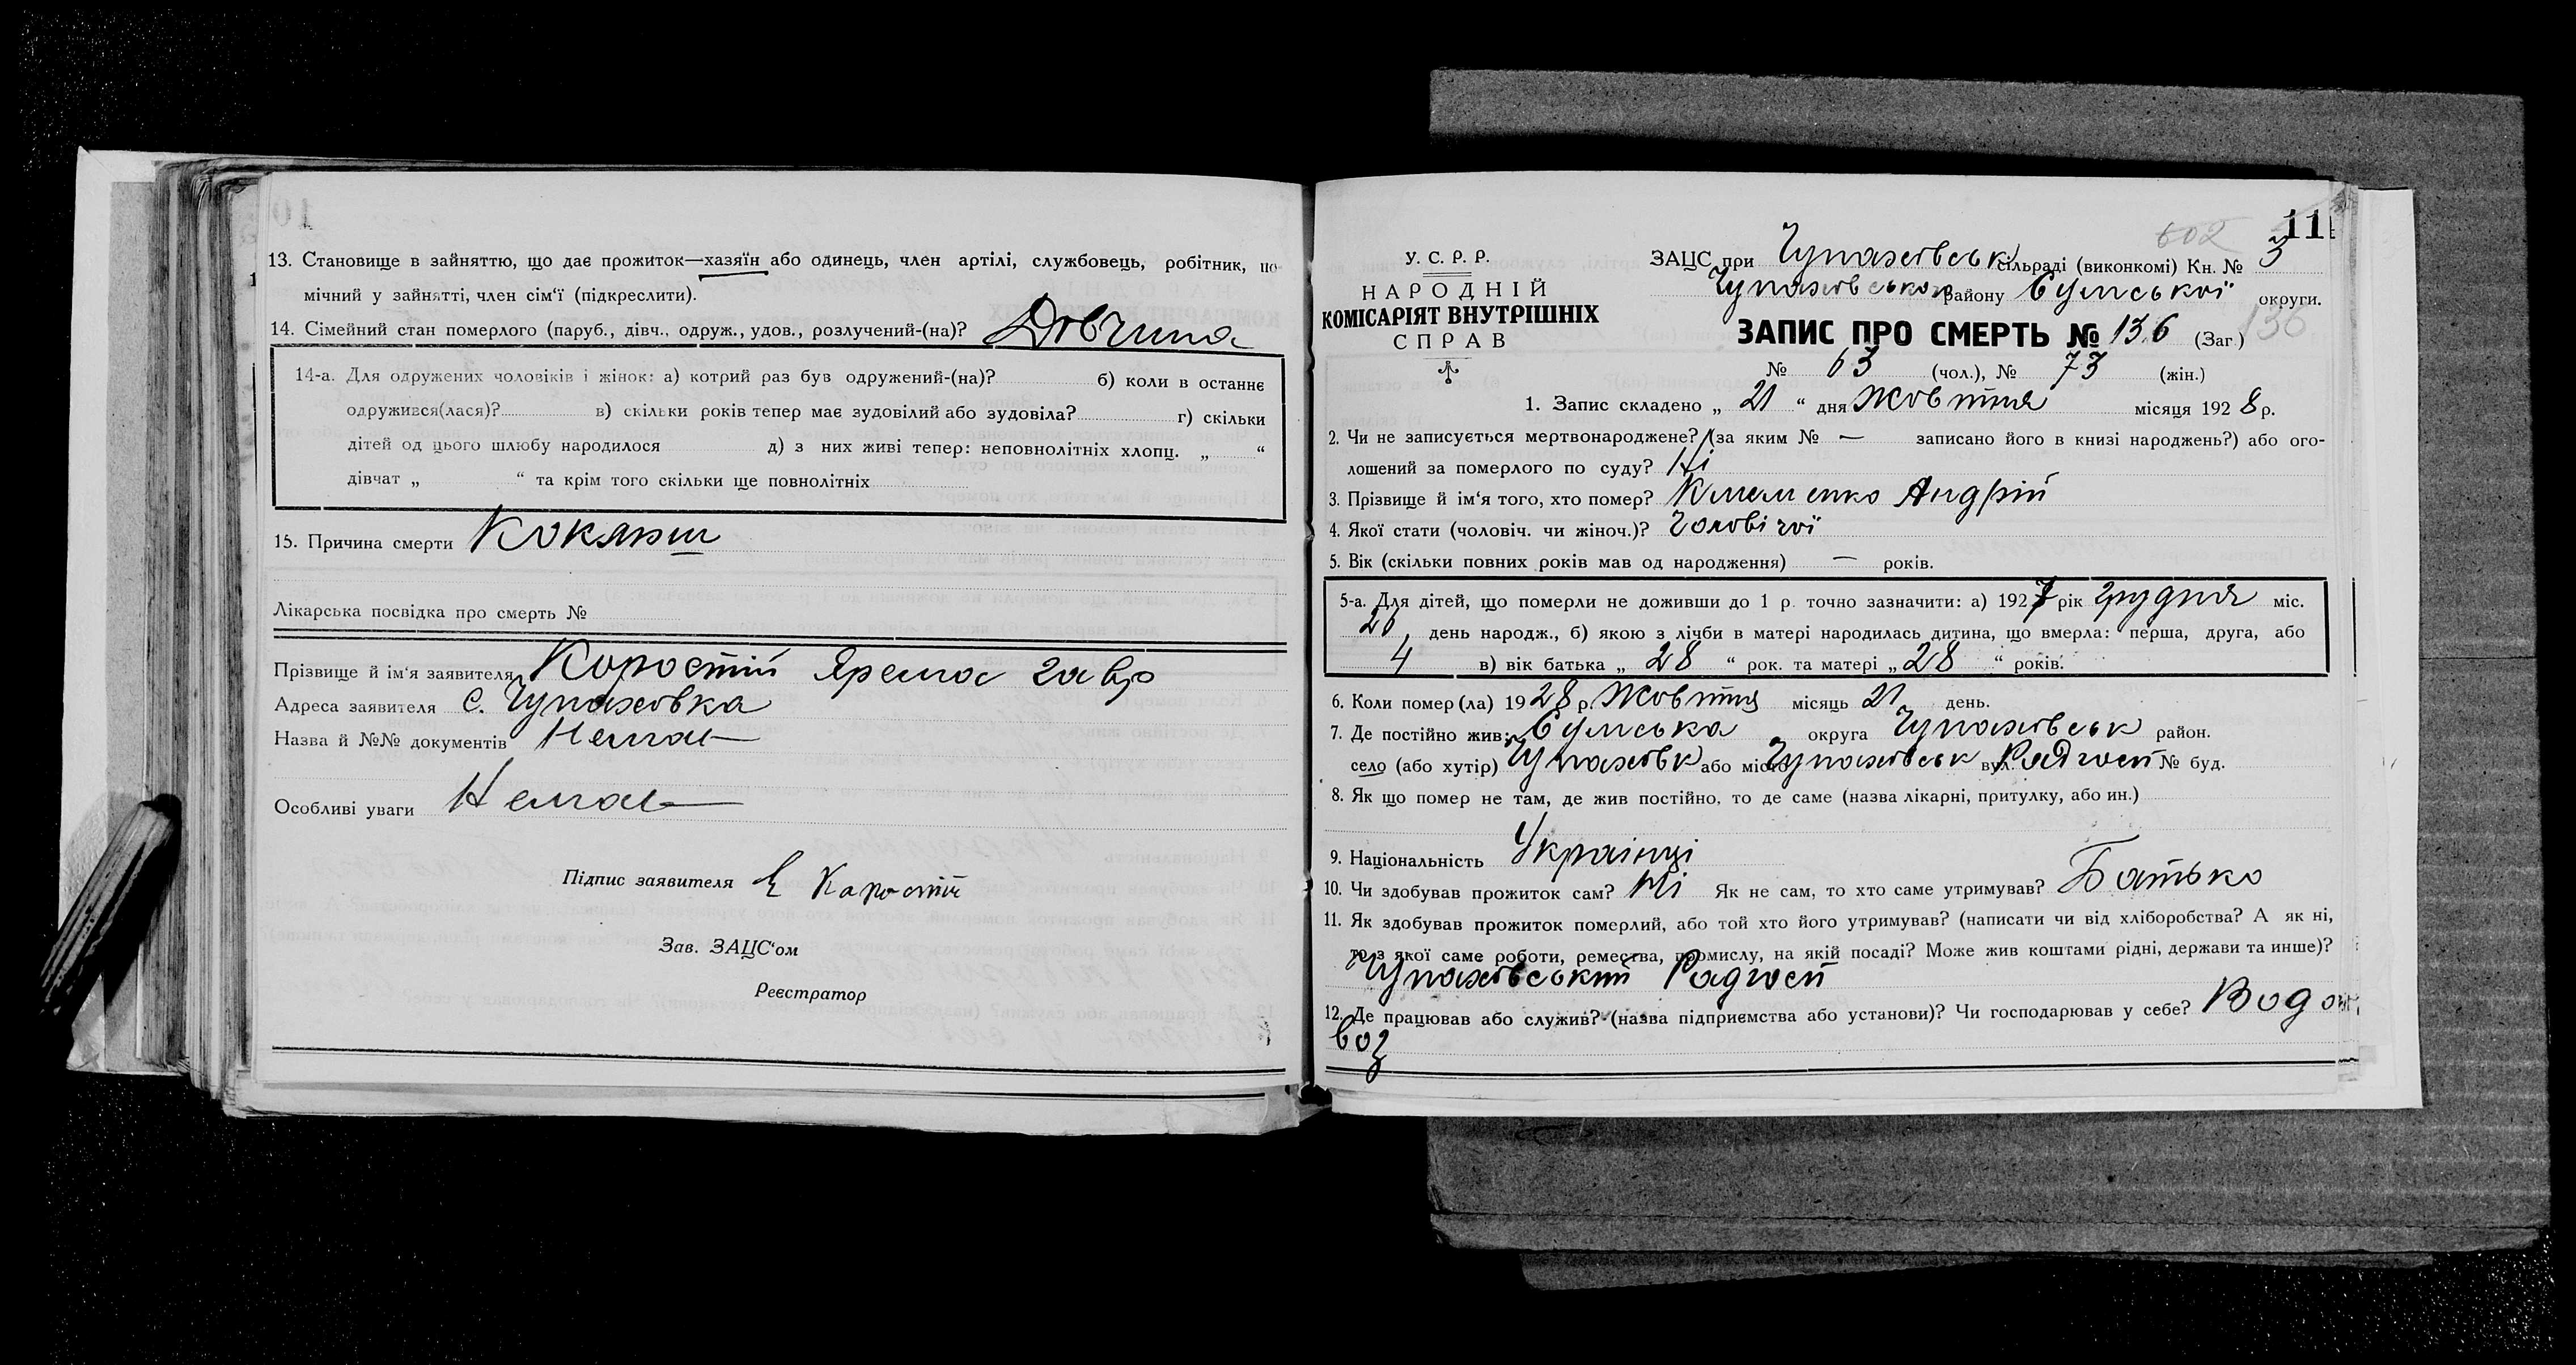 13. Становище в зайняттю, що дає прожиток—хазяїн або одинець, член артілі, службовець, робітник, по-
мічний у зайнятті, член сім'ї (підкреслити).
14. Сімейний стан померлого (паруб., дівч., одруж., удов., розлучений-(на)? Дівчина
14-а. Для одружених чоловіків і жінок: а) котрий раз був одружений-(на)? б) коли в останнє
одружився(лася)? в) скільки років тепер має зудовілий або зудовіла? г) скільки
дітей од цього шлюбу народилося д) з них живі тепер: неповнолітніх хлопц. „ “
дівчат „ “ та крім того скільки ще повнолітніх
15. Причина смерти Коклюш
Лікарська посвідка про смерть №
Прізвище й ім'я заявителя Коростій Ярема Гавр
Адреса заявителя с. Чупахівка
Назва й №№ документів Немає
Особливі уваги Немає
Підпис заявителя Е Каростій
Зав. ЗАЦС'ом
Реєстратор
602 11
У. С. Р. Р.
НАРОДНІЙ
КОМІСАРІЯТ ВНУТРІШНІХ
СПРАВ
ЗАЦС при Чупахівськ сільраді (виконкомі) Кн. № 3
Чупахівського району Сумської округи.
ЗАПИС ПРО СМЕРТЬ № 136 (Заг.) 136
№ 63 (чол.), № 73 (жін.)
1. Запис складено „ 21 “ дня Жовтня місяця 1928 р.
2. Чи не записується мертвонароджене? (за яким № — записано його в книзі народжень?) або ого-
лошений за померлого по суду? Ні
3. Прізвище й ім'я того, хто помер? Клименко Андрій
4. Якої стати (чоловіч. чи жіноч.)? Чоловічої
5. Вік (скільки повних років мав од народження) — років.
5-а. Для дітей, що померли не доживши до 1 р. точно зазначити: а) 1927 рік грудня міс.
день народж., б) якою з лічби в матері народилась дитина, що вмерла: перша, друга, або
4 в) вік батька „ 28 “ рок. та матері „ 28 “ років.
6. Коли помер(ла) 1928 р. Жовтня місяць 21 день.
7. Де постійно жив: Сумська округа Чупахівськ район.
село (або хутір) Чупахівк або місто Чупахівськ вул. Радгосп № буд.
8. Як що помер не там, де жив постійно, то де саме (назва лікарні, притулку, або ин.)
9. Національність Українці
10. Чи здобував прожиток сам? Ні Як не сам, то хто саме утримував? Батько
11. Як здобував прожиток померлий, або той хто його утримував? (написати чи від хліборобства? А як ні,
то з якої саме роботи, ремества, промислу, на якій посаді? Може жив коштами рідні, держави та инше)?
Чупахівський Радгосп
12. Де працював або служив? (назва підприємства або установи)? Чи господарював у себе? Водо
воз